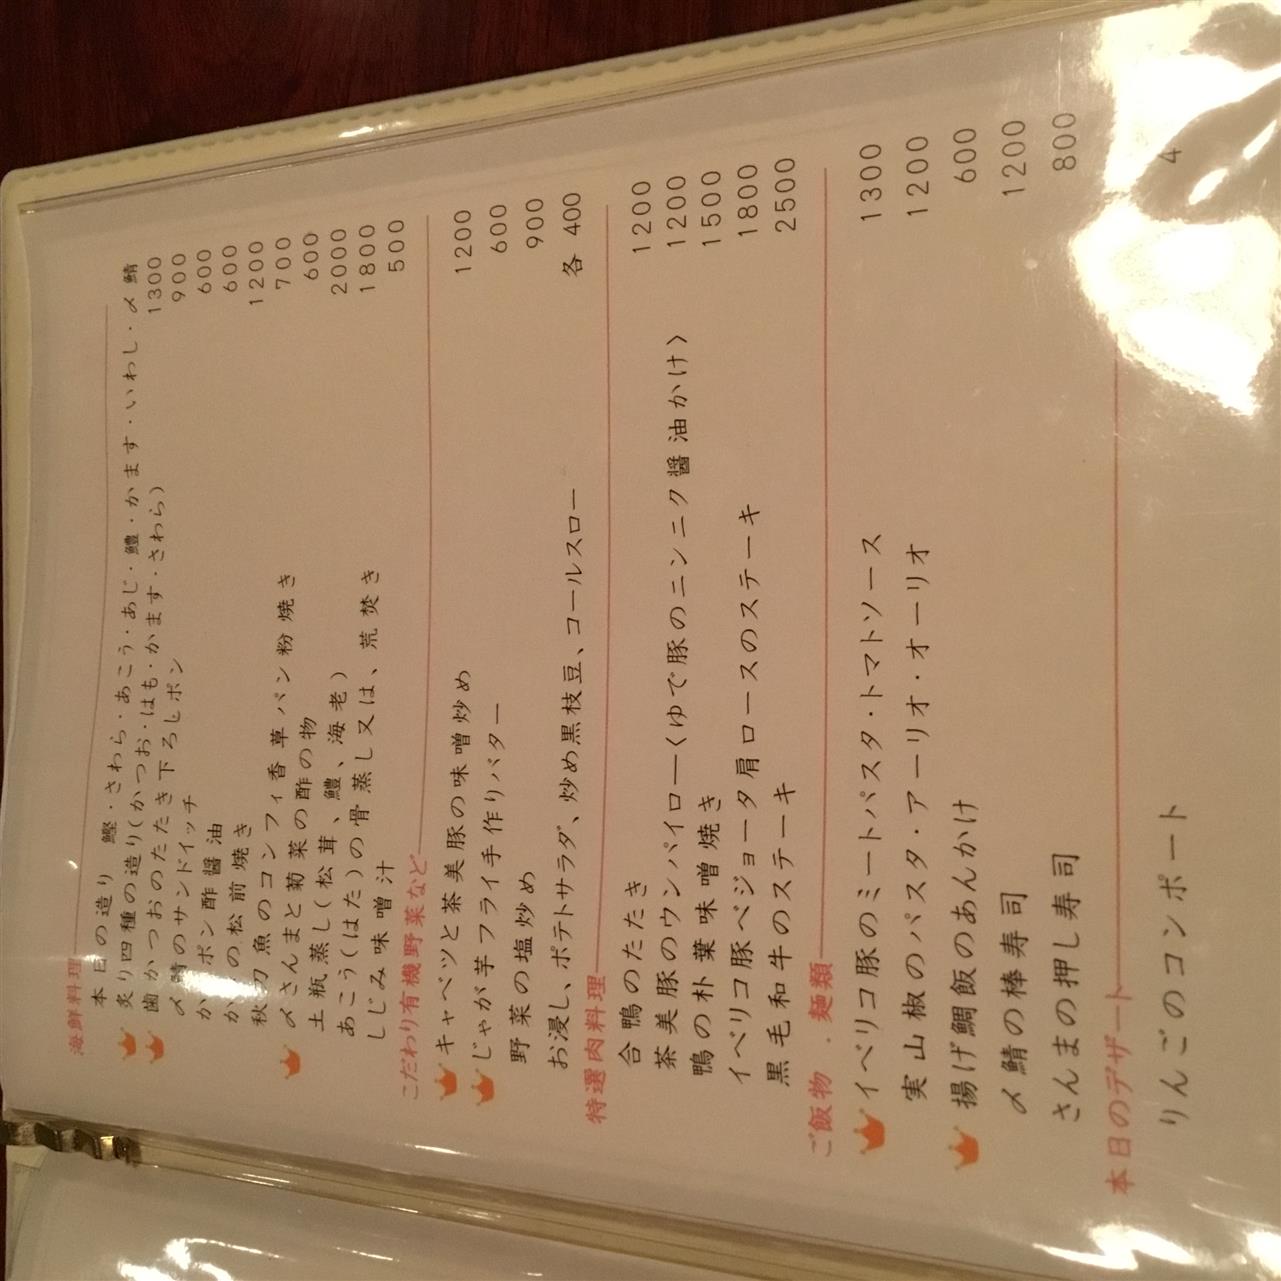 海鮮料理
本日の造り 鰹・さわら・あこう・あじ・鱧・かます・いわし・〆鯖
炙り四種の造り(かつお・はも・かます・さわら) 1300
歯かつおのたたき下ろしポン 900
〆鯖のサンドイッチ 600
かポン酢醤油 600
かの松前焼き 1200
秋刀魚のコンフィ香草パン粉焼き 700
〆さんまと菊菜の酢の物 600
土瓶蒸し(松茸、鱧、海老) 2000
あこう(はた)の骨蒸し又は、荒焚き 1800
しじみ味噌汁 500
こだわり有機野菜など
キャベツと茶美豚の味噌炒め 1200
じゃが芋フライ手作りバター 600
野菜の塩炒め 900
お浸し、ポテトサラダ、炒め黒枝豆、コールスロー 各 400
特選肉料理
合鴨のたたき 1200
茶美豚のウンパイロー〈ゆで豚のニンニク醤油かけ〉 1200
鴨の朴葉味噌焼き 1500
イベリコ豚ベジョータ肩ロースのステーキ 1800
黒毛和牛のステーキ 2500
ご飯物・麺類
イベリコ豚のミートパスタ・トマトソース 1300
実山椒のパスタ・アーリオ・オーリオ 1200
揚げ鯛飯のあんかけ 600
〆鯖の棒寿司 1200
さんまの押し寿司 800
本日のデザート
りんごのコンポート 4